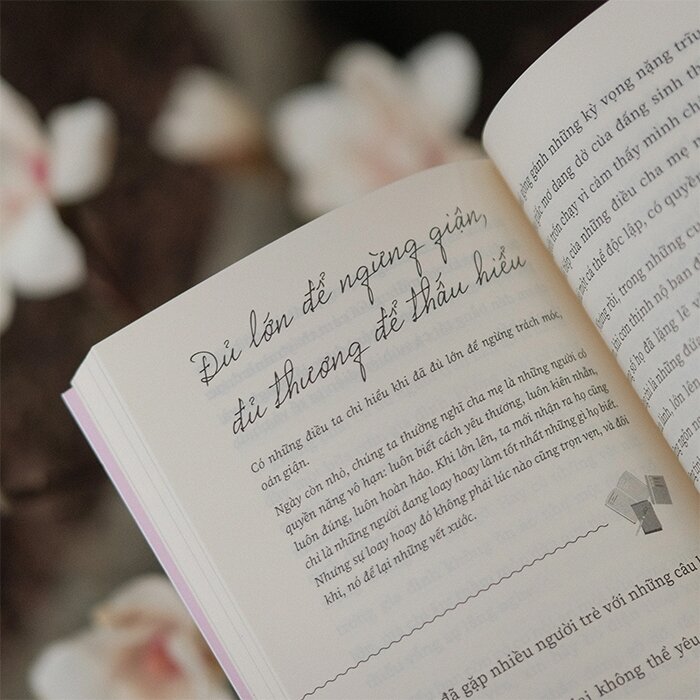 Đủ lớn để ngừng giận,
đủ thương để thấu hiểu
Có những điều ta chỉ hiểu khi đã đủ lớn để ngừng trách móc,
oán giận.
Ngày còn nhỏ, chúng ta thường nghĩ cha mẹ là những người có
quyền năng vô hạn: luôn biết cách yêu thương, luôn kiên nhẫn,
luôn đúng, luôn hoàn hảo. Khi lớn lên, ta mới nhận ra họ cũng
chỉ là những người đang loay hoay làm tốt nhất những gì họ biết.
Nhưng sự loay hoay đó không phải lúc nào cũng trọn vẹn, và đôi
khi, nó để lại những vết xước.
đã gặp nhiều người trẻ với những câu
không thể yêu
gồng gánh những kỳ vọng nặng trĩu
mơ dang dở của đấng sinh th
trốn chạy vì cảm thấy mình ch
của những điều cha mẹ
cá thể độc lập, có quyền
rồi, trong những cu
con thịnh nộ ban đ
họ đã lặng lẽ
là những đứ